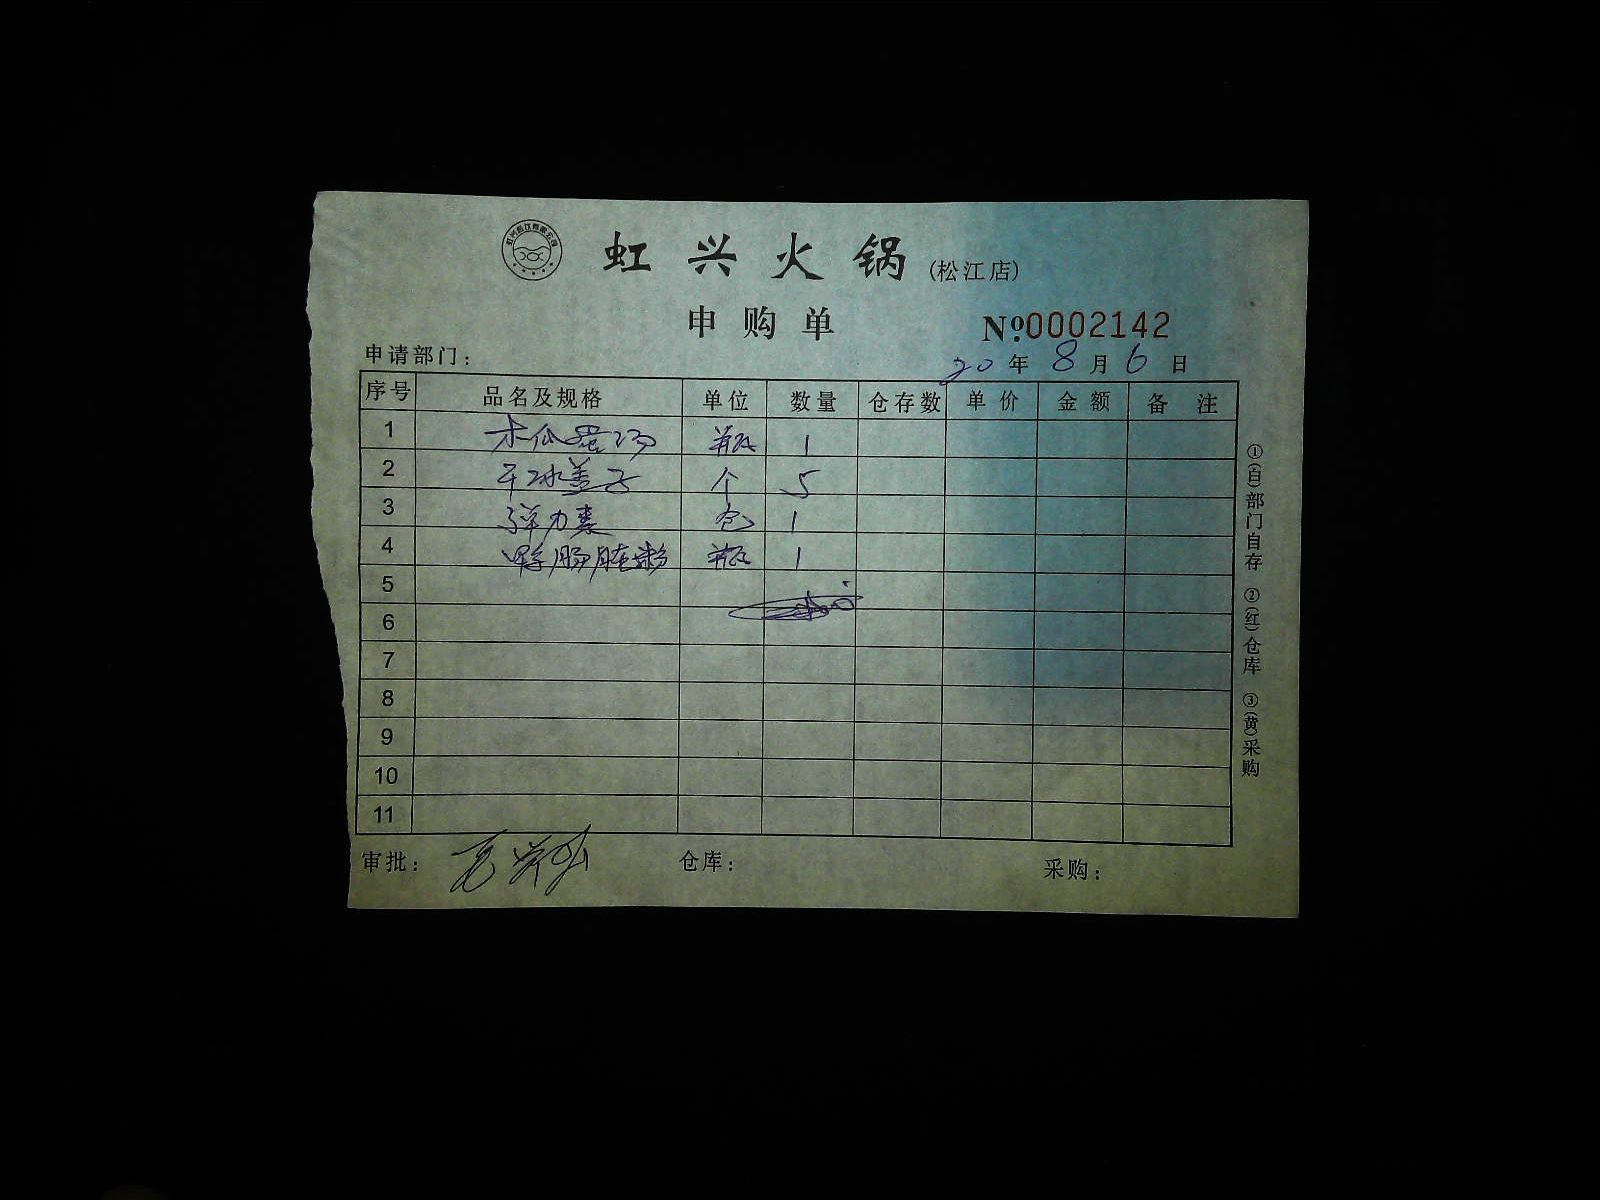 虹兴火锅 (松江店)
申购单
№0002142
申请部门:
20年8月6日
序号 品名及规格 单位 数量 仓存数 单价 金额 备注
1 木瓜蛋 瓶 1
2 干冰盖子 个 5
3 弹力素 包 1
4 肠腌粉 瓶 1
5
6
7
8
9
10
11
审批: 仓库: 采购:
①(白)部门自存 ②(红)仓库 ③(黄)采购